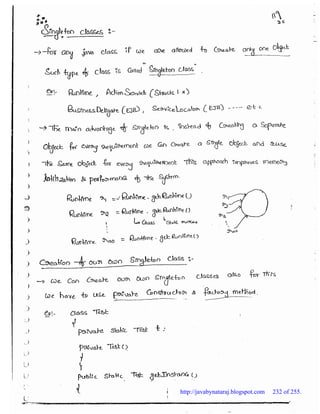 Singleton classes :-
→ for any java class if we are allowed to create only one object
such type of class is Good Singleton class.
Ex:- Runtime, ActionServlet (Struts 1.x)
BusinessDelegate (EJB), ServiceLocator (EJB) ---- etc
→ The main advantage of Singleton is, instead of creating a separate
object for every requirement we can create a single object and reuse
the same object for every requirement This approach improves memory
utilization & performance of the system.
Runtime r1 = Runtime.getRuntime()
Runtime r2 = Runtime.getRuntime()
class static method
Runtime r100 = Runtime.getRuntime()
r1
r2
r100
Creation of our own Singleton class :-
→ we can create our own singleton classes also for this
we have to use private constructor & factory method.
Ex:- class Test
{
private static Test t;
private Test()
{
}
public static Test getInstance()
{
http://javabynataraj.blogspot.com 232 of 255.